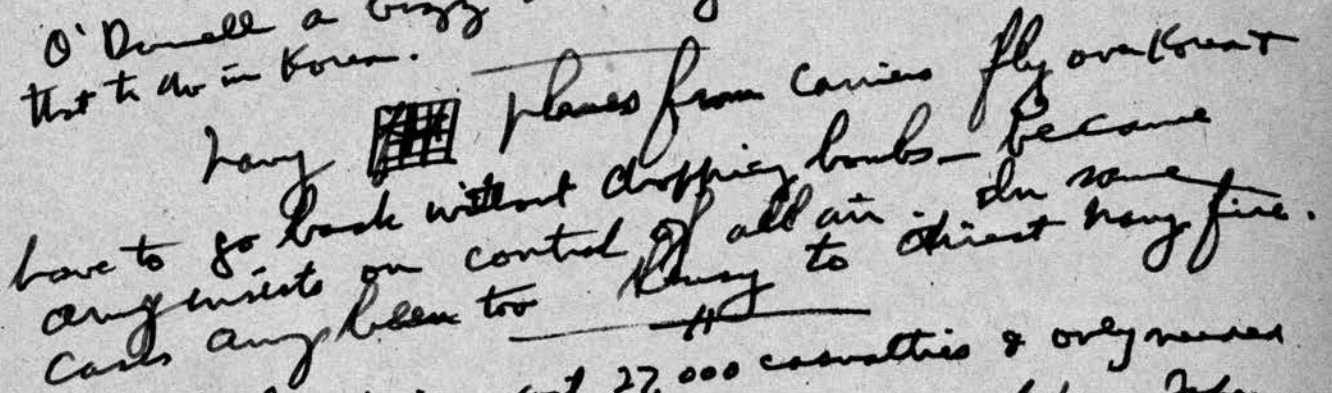 O'Donnell a
that to do in Korea.
Navy planes from carriers fly over Korea &
have to go back without dropping bombs – because
army insists on control of all air. In some
cases army been too busy to direct navy fire.
27,000 casualties & only